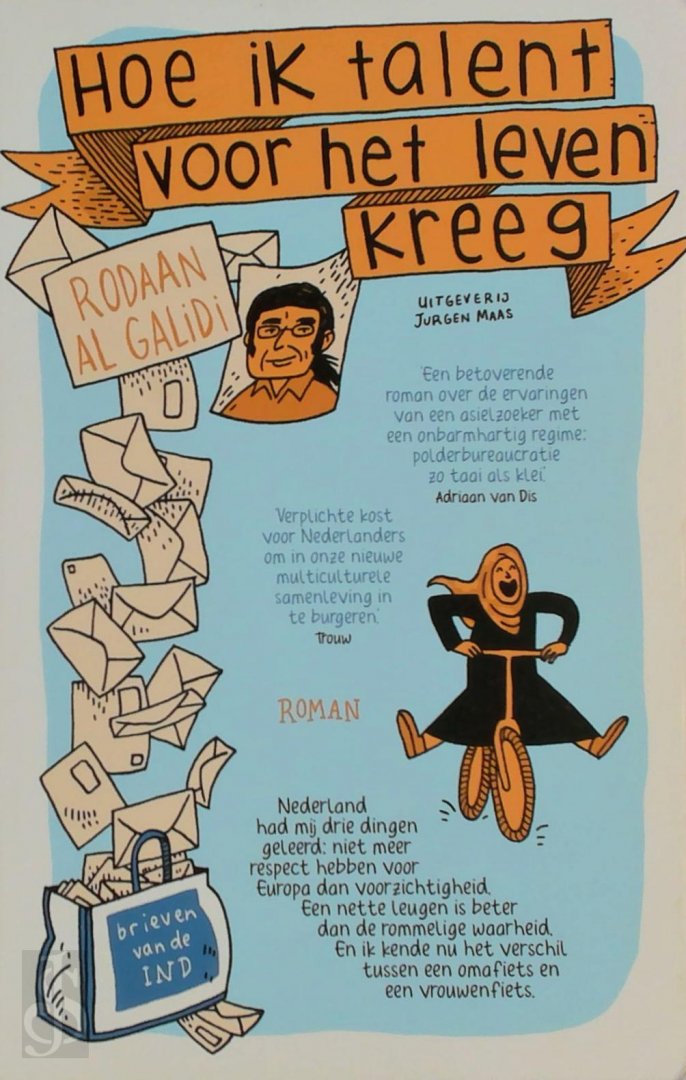 Hoe ik talent
voor het leven
kreeg
RODAAN
AL GALIDI
UITGEVERIJ
JURGEN MAAS
'Een betoverende
roman over de ervaringen
van een asielzoeker met
een onbarmhartig regime:
polderbureaucratie
zo taai als klei.'
Adriaan van Dis
'Verplichte kost
voor Nederlanders
om in onze nieuwe
multiculturele
samenleving in
te burgeren.'
Trouw
ROMAN
Nederland
had mij drie dingen
geleerd: niet meer
respect hebben voor
Europa dan voorzichtigheid.
Een nette leugen is beter
dan de rommelige waarheid.
En ik kende nu het verschil
tussen een omafiets en
een vrouwenfiets.
brieven
van de
IND